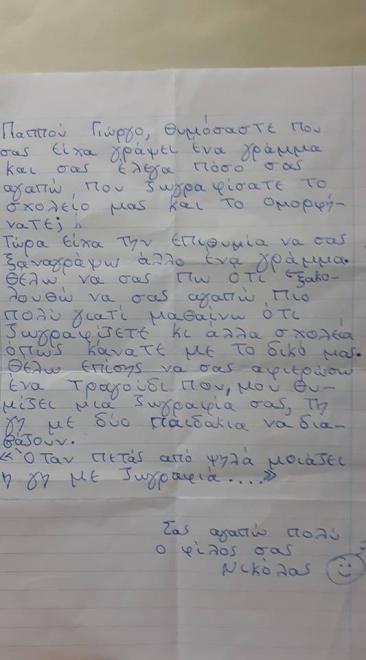 Παππού Γιώργο, θυμόσαστε που
σας είχα γράψει ένα γράμμα
και σας έλεγα πόσο σας
αγαπώ, που ζωγραφίσατε το
σχολείο μας και το ομορφή-
νατε;
Τώρα είχα την επιθυμία να σας
ξαναγράψω άλλο ένα γράμμα.
Θέλω να σας πω ότι εξακο-
λουθώ να σας αγαπώ πιο
πολύ γιατί μαθαίνω ότι
ζωγραφίζετε κι άλλα σχολεία
όπως κάνατε με το δικό μας.
Θέλω επίσης να σας αφιερώσω
ένα τραγούδι που, μου θυ-
μίζει μια ζωγραφιά σας, τη
γη με δύο παιδάκια να δια-
βάζουν.
«Όταν πετάς από ψηλά μοιάζει
η γη με ζωγραφιά....»
Σας αγαπώ πολύ
ο φίλος σας
Νικόλας